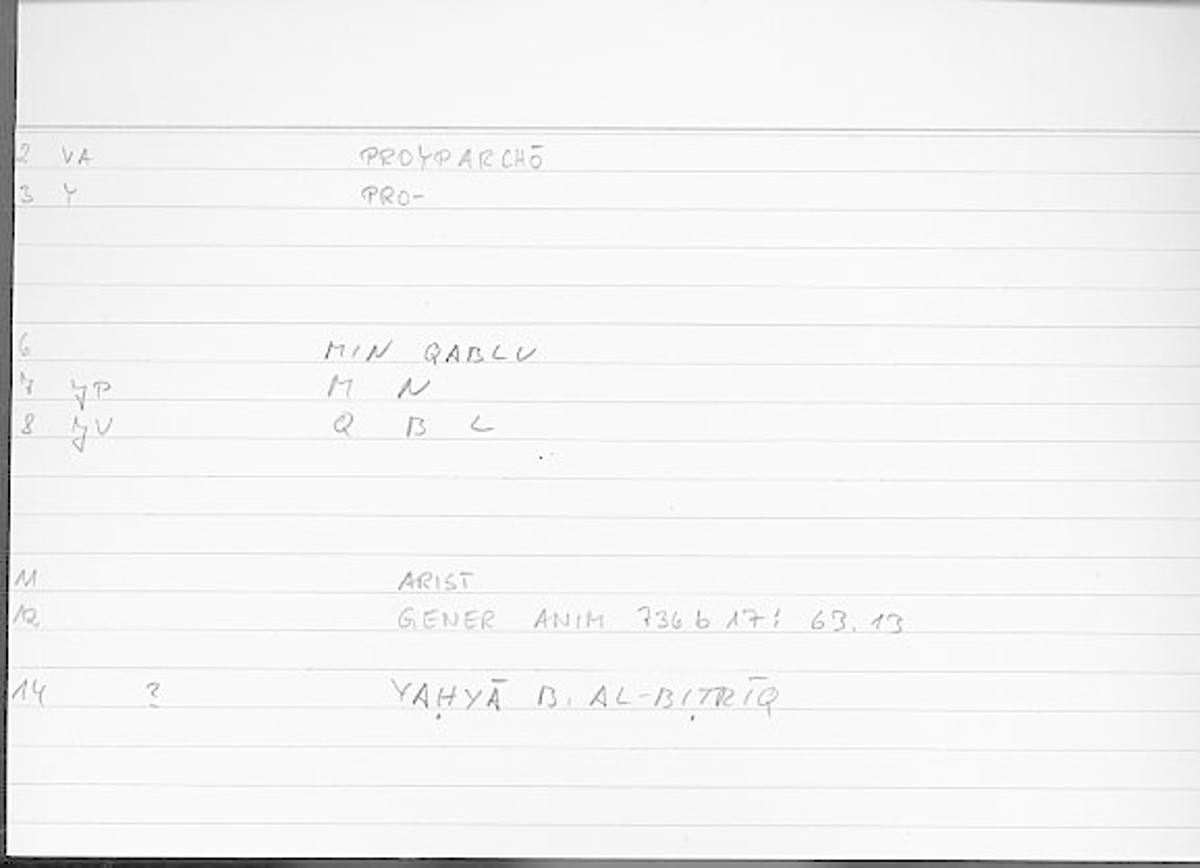 2 VA PROYPARCHŌ
3 Y PRO-
6 MIN QABLU
7 JP M N
8 JV Q B L
11 ARIST
12 GENER ANIM 736 b 17: 63.13
14 ? YAḤYĀ B. AL-BIṬRĪQ